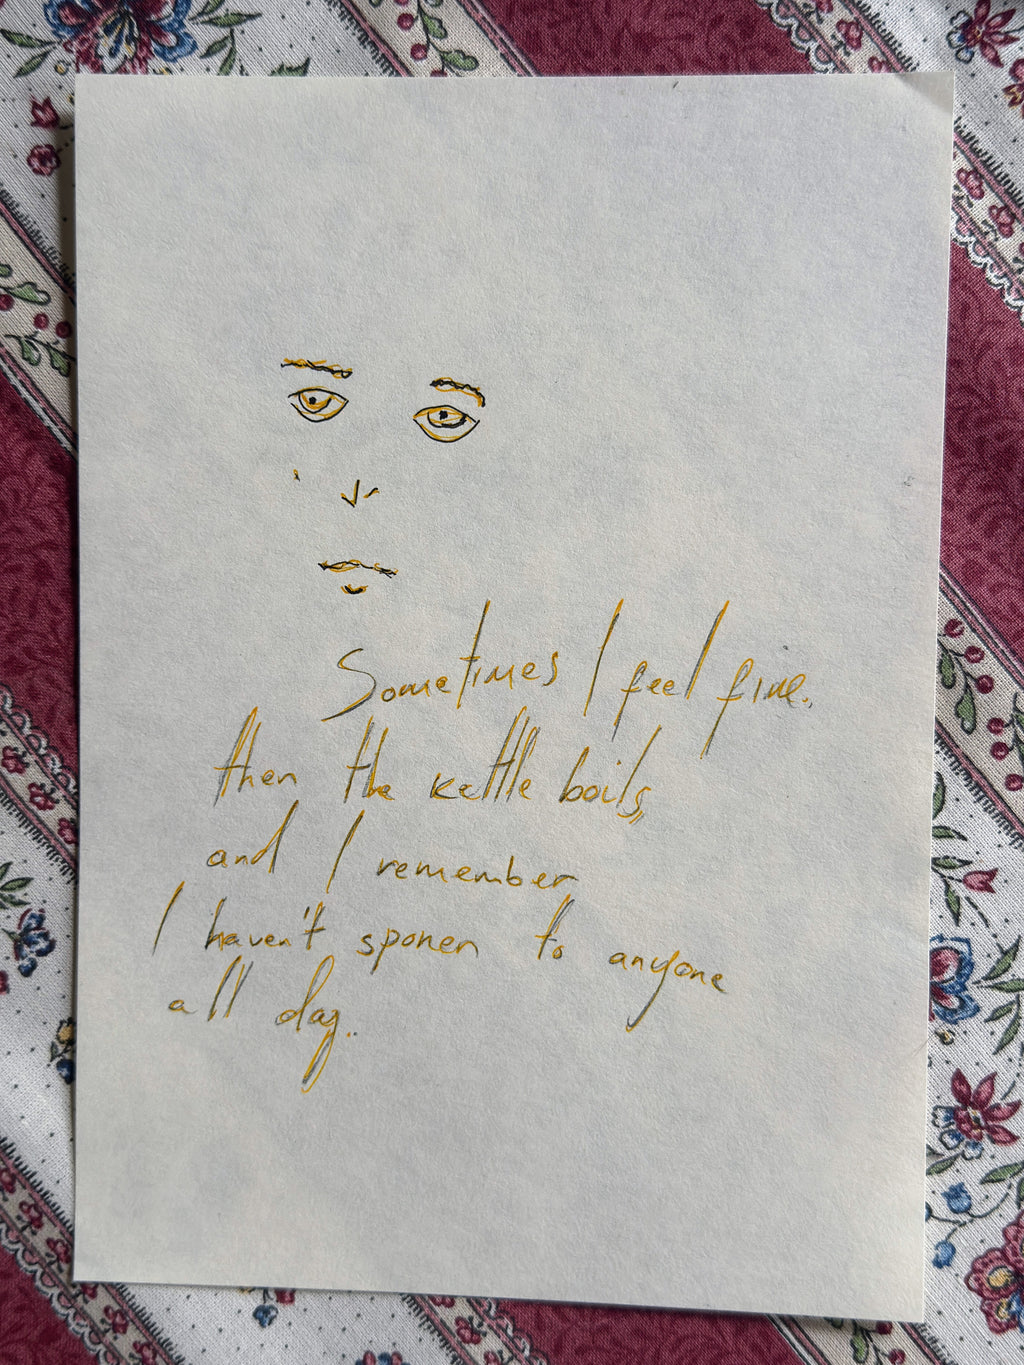 Sometimes I feel fine.
then the kettle boils,
and I remember
I haven't spoken to anyone
all day.